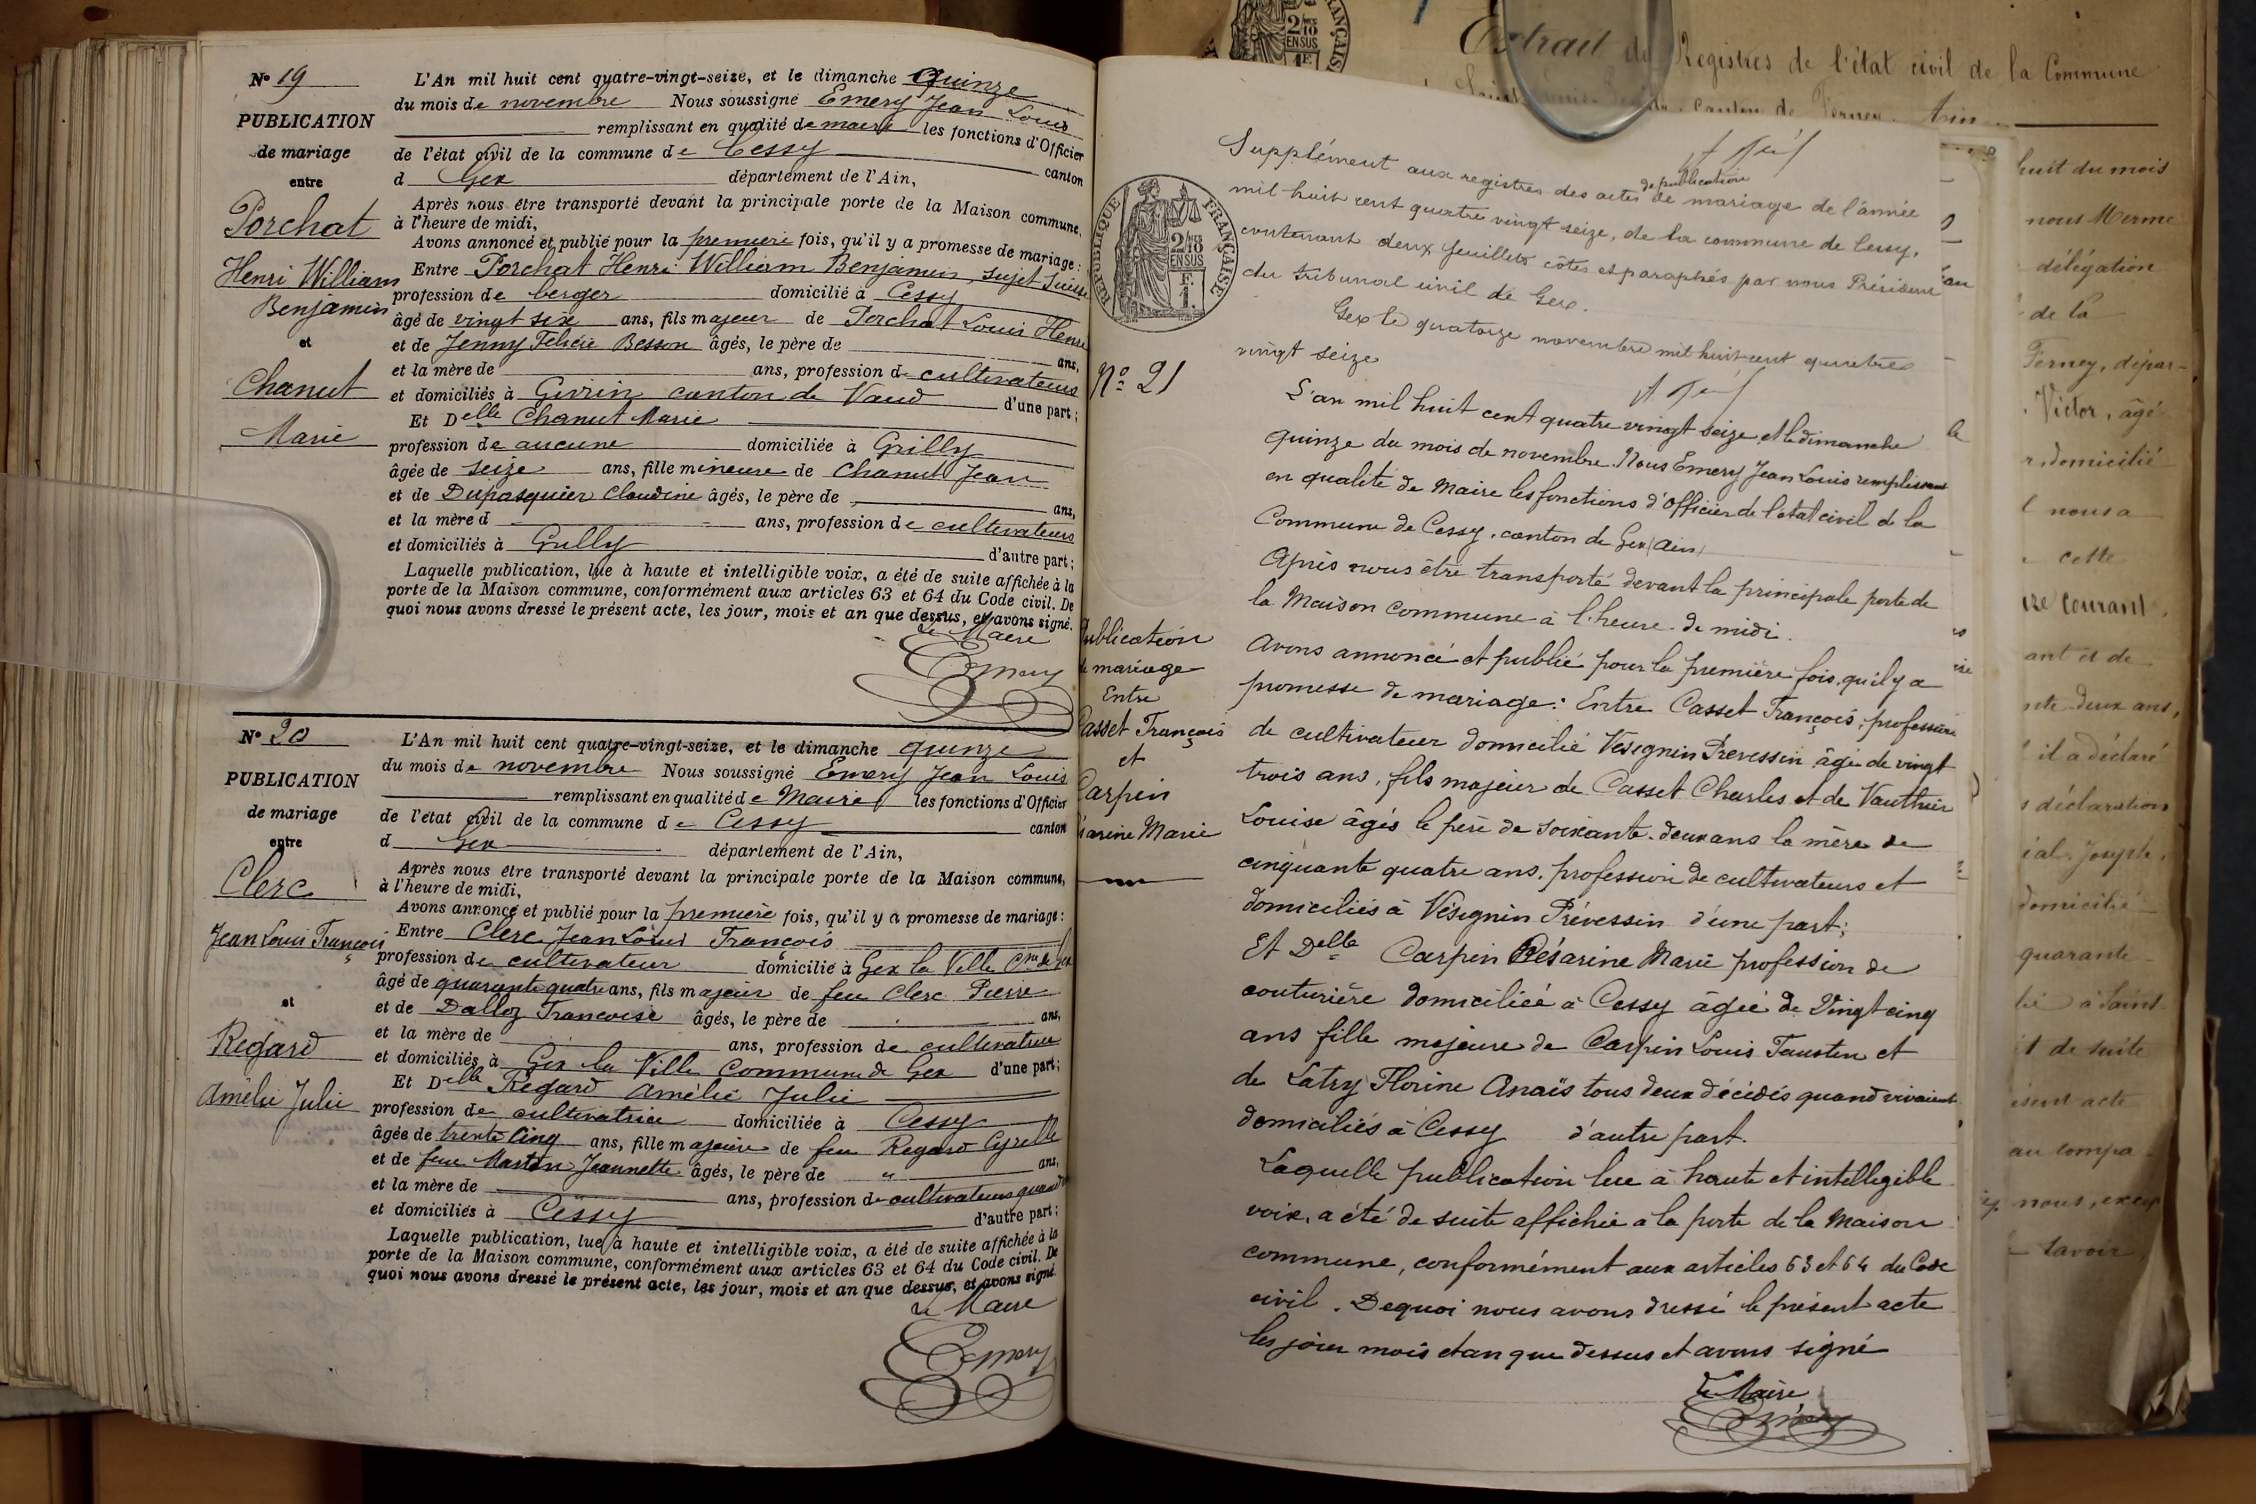 Nº 19
PUBLICATION
de mariage
entre
Porchat
Henri William
Benjamin
et
Chanut
Marie
L'An mil huit cent quatre-vingt-seize, et le dimanche quinze
du mois de novembre Nous soussigné Emery Jean Louis
remplissant en qualité de maire les fonctions d'Officier
de l'état civil de la commune de Cessy canton
d Gex département de l'Ain,
Après nous être transporté devant la principale porte de la Maison commune,
à l'heure de midi,
Avons annoncé et publié pour la première fois, qu'il y a promesse de mariage :
Entre Porchat Henri William Benjamin, sujet Suisse
profession de berger domicilié à Cessy
âgé de vingt six ans, fils majeur de Porchat Louis Henri
et de Jenny Félicie Besson âgés, le père de ans,
et la mère de ans, profession de cultivateurs
et domiciliés à Givrin canton de Vaud d'une part ;
Et Delle Chanut Marie
profession de aucune domiciliée à Grilly
âgée de seize ans, fille mineure de Chanut Jean
et de Dupasquier Claudine âgés, le père de ans,
et la mère d ans, profession de cultivateurs
et domiciliés à Grilly d'autre part ;
Laquelle publication, lue à haute et intelligible voix, a été de suite affichée à la
porte de la Maison commune, conformément aux articles 63 et 64 du Code civil. De
quoi nous avons dressé le présent acte, les jour, mois et an que dessus, et avons signé.
Le Maire
Emery
Nº 20
PUBLICATION
de mariage
entre
Clerc
Jean Louis François
et
Regard
Amélie Julie
L'An mil huit cent quatre-vingt-seize, et le dimanche quinze
du mois de novembre Nous soussigné Emery Jean Louis
remplissant en qualité de Maire les fonctions d'Officier
de l'état civil de la commune de Cessy canton
d Gex département de l'Ain,
Après nous être transporté devant la principale porte de la Maison commune,
à l'heure de midi,
Avons annoncé et publié pour la première fois, qu'il y a promesse de mariage :
Entre Clerc Jean Louis François
profession de cultivateur domicilié à Gex la Ville Cne de Gex
âgé de quarante quatre ans, fils majeur de feu Clerc Pierre
et de Dalloz Francoise âgés, le père de ans,
et la mère de ans, profession de cultivatrice
et domiciliés à Gex la Ville Commune de Gex d'une part ;
Et Delle Regard Amélie Julie
profession de cultivatrice domiciliée à Cessy
âgée de trente cinq ans, fille majeure de feu Regard Cyrille
et de feue Martin Jeannette âgés, le père de " ans,
et la mère de ans, profession de cultivateurs quand
et domiciliés à Cessy d'autre part ;
Laquelle publication, lue à haute et intelligible voix, a été de suite affichée à la
porte de la Maison commune, conformément aux articles 63 et 64 du Code civil. De
quoi nous avons dressé le présent acte, les jour, mois et an que dessus, et avons signé.
Le Maire
Emery
REPUBLIQUE FRANÇAISE
2/10 EN SUS
F. 1.
Nº 21
Publication
de mariage
Entre
Casset François
et
Carpin
Césarine Marie
Supplément aux registres des actes de publication de mariage de l'année
mil huit cent quatre vingt seize, de la commune de Cessy,
contenant deux feuillets côtés et paraphés par nous Président
du tribunal civil de Gex.
Gex le quatorze novembre mil huit cent quatre
vingt seize
L'an mil huit cent quatre vingt seize et le dimanche
quinze du mois de novembre. Nous Emery Jean Louis remplissant
en qualité de Maire les fonctions d'officier de l'état civil de la
Commune de Cessy, canton de Gex (Ain)
Après nous être transporté devant la principale porte de
la Maison Commune à l'heure de midi.
Avons annoncé et publié pour la première fois, qu'il y a
promesse de mariage : Entre Casset François, profession
de cultivateur domicilié Vésegnin Prevessin âgé de vingt
trois ans, fils majeur de Casset Charles et de Vauthier
Louise âgés le père de soixante-deux ans la mère de
cinquante quatre ans, profession de cultivateurs et
domiciliés à Vésegnin Prévessin d'une part ;
Et Delle Carpin Césarine Marie profession de
couturière domiciliée à Cessy âgée de Vingt cinq
ans fille majeure de Carpin Louis Faustin et
de Latry Florine Anaïs tous deux décédés quand vivaient
domiciliés à Cessy d'autre part.
Laquelle publication lue à haute et intelligible
voix, a été de suite affichée à la porte de la Maison
commune, conformément aux articles 63 et 64 du Code
civil. De quoi nous avons dressé le présent acte
les jour mois et an que dessus et avons signé
Le Maire
Emery
2/10 EN SUS
Extrait des Registres de l'état civil de la Commune
canton de Ferney. Ain
huit du mois
nous Merme
délégation
de la
Ferney, dépar-
Victor, âgé
domicilié
nous a
cette
courant.
ant et de
nte deux ans,
il a déclaré
déclaration
Joseph,
domicilié
quarante
à Saint
et de suite
acte
au compa
nous, excep
savoir